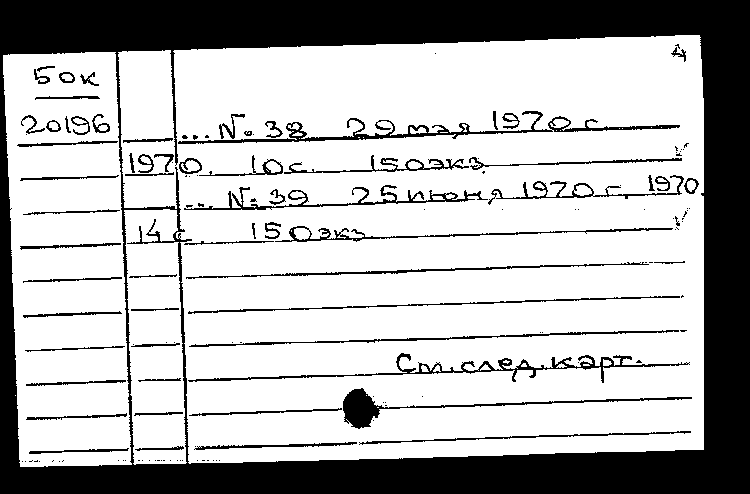 4
Бок
20196
... № 38 29 мая 1970 г.
1970. 10 с. 150 экз.
... № 39 25 июня 1970 г. 1970.
14 с. 150 экз.
См. след. карт.